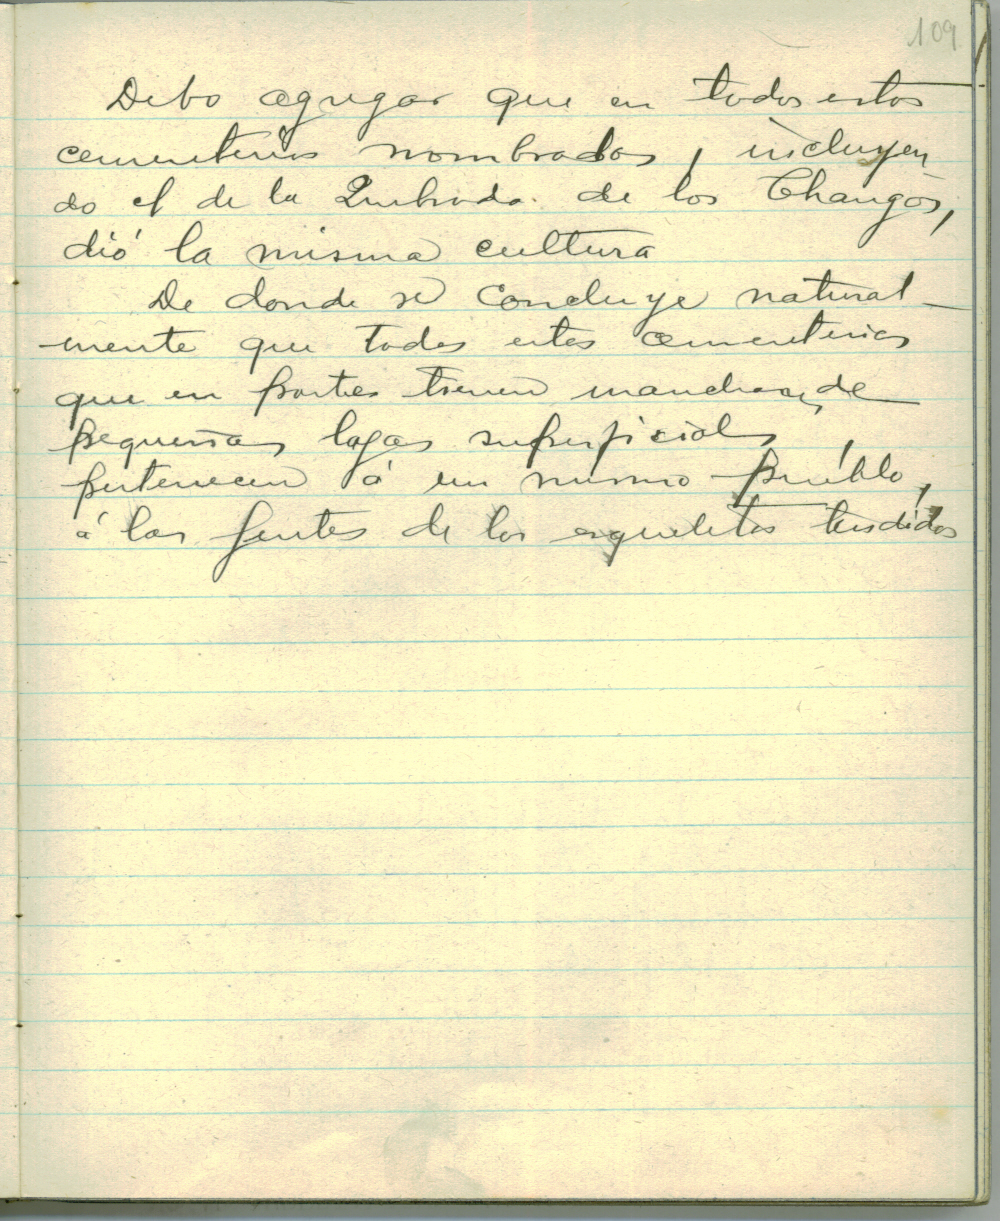 109
Debo agregar que en todos estos
cementerios nombrados, incluyen
do el de la Quebrada de los Changos,
dió la misma cultura
De donde se concluye natural-
mente que todos estos cementerios
que en partes tienen manchas de
pequeñas lajas superficiales,
pertenecen á un mismo pueblo,
á las gentes de los esqueletos tendidos